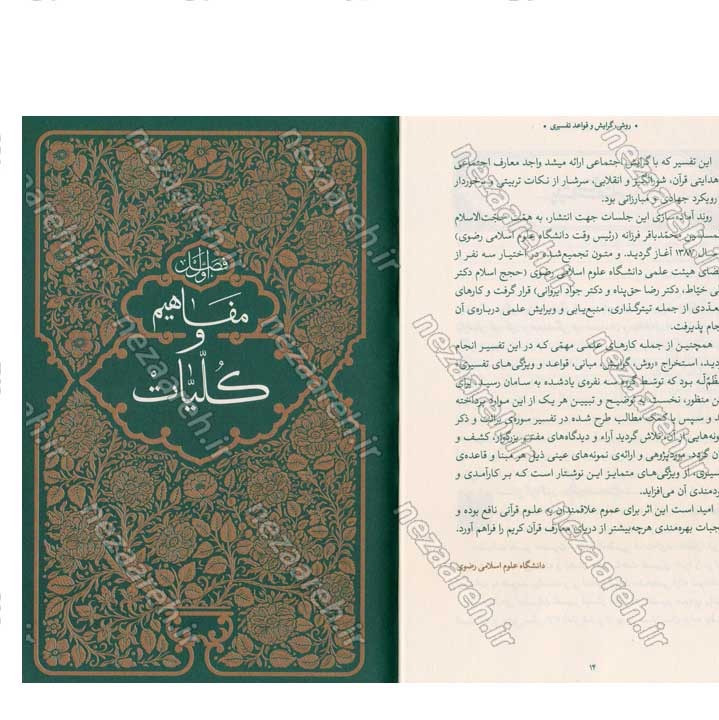 • روش، گرایش و قواعد تفسیری •
این تفسیر که با گرایش اجتماعی ارائه میشد واجد معارف اجتماعی
هدایتی قرآن، شورانگیز و انقلابی، سرشار از نکات تربیتی و برخوردار
رویکرد جهادی و مبارزاتی بود.
روند آماده‌سازی این جلسات جهت انتشار، به همّت حجت‌الاسلام
محمّدباقر فرزانه (رئیس وقت دانشگاه علوم اسلامی رضوی)
سال ۱۳۸۷ آغاز گردید. و متون تجمیع‌شده در اختیار سه نفر از
هیئت علمی دانشگاه علوم اسلامی رضوی (حجج اسلام دکتر
خیّاط، دکتر رضا حق‌پناه و دکتر جواد ایروانی) قرار گرفت و کارهای
از جمله تیترگذاری، منبع‌یابی و ویرایش علمی درباره‌ی آن
پذیرفت.
همچنین از جمله کارهای علمی مهمّی که در این تفسیر انجام
استخراج «روش، گرایش، مبانی، قواعد و ویژگی‌های تفسیری
بود که توسّط گروه سه نفره‌ی یادشده به سامان رسید. برای
منظور، نخست به توضیح و تبیین هر یک از این موارد پرداخته
و سپس با کمک مطالب طرح شده در تفسیر سوره‌ی برائت و ذکر
از آن، تلاش گردید آراء و دیدگاه‌های مفسّر بزرگوار، کشف و
گردد. موردپژوهی و ارائه‌ی نمونه‌های عینی ذیل هر مبنا و قاعده‌ی
از ویژگی‌های متمایز این نوشتار است که بر کارآمدی و
آن می‌افزاید.
امید است این اثر برای عموم علاقمندان به علوم قرآنی نافع بوده و
بهره‌مندی هرچه‌بیشتر از دریای معارف قرآن کریم را فراهم آورد.
دانشگاه علوم اسلامی رضوی
۱۴
فصل اول
مفاهیم
و
کلّیّات
nezaareh.ir
nezaareh.ir
nezaareh.ir
nezaareh.ir
nezaareh.ir
nezaareh.ir
nezaareh.ir